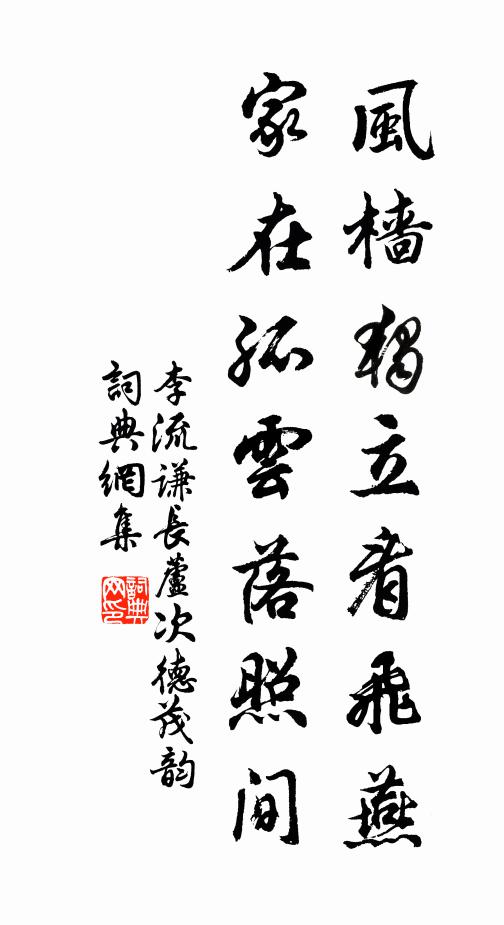 風檣獨立看飛燕
家在孤雲落照間
李流謙長蘆次德茂韵
詞典網集
詞典網印